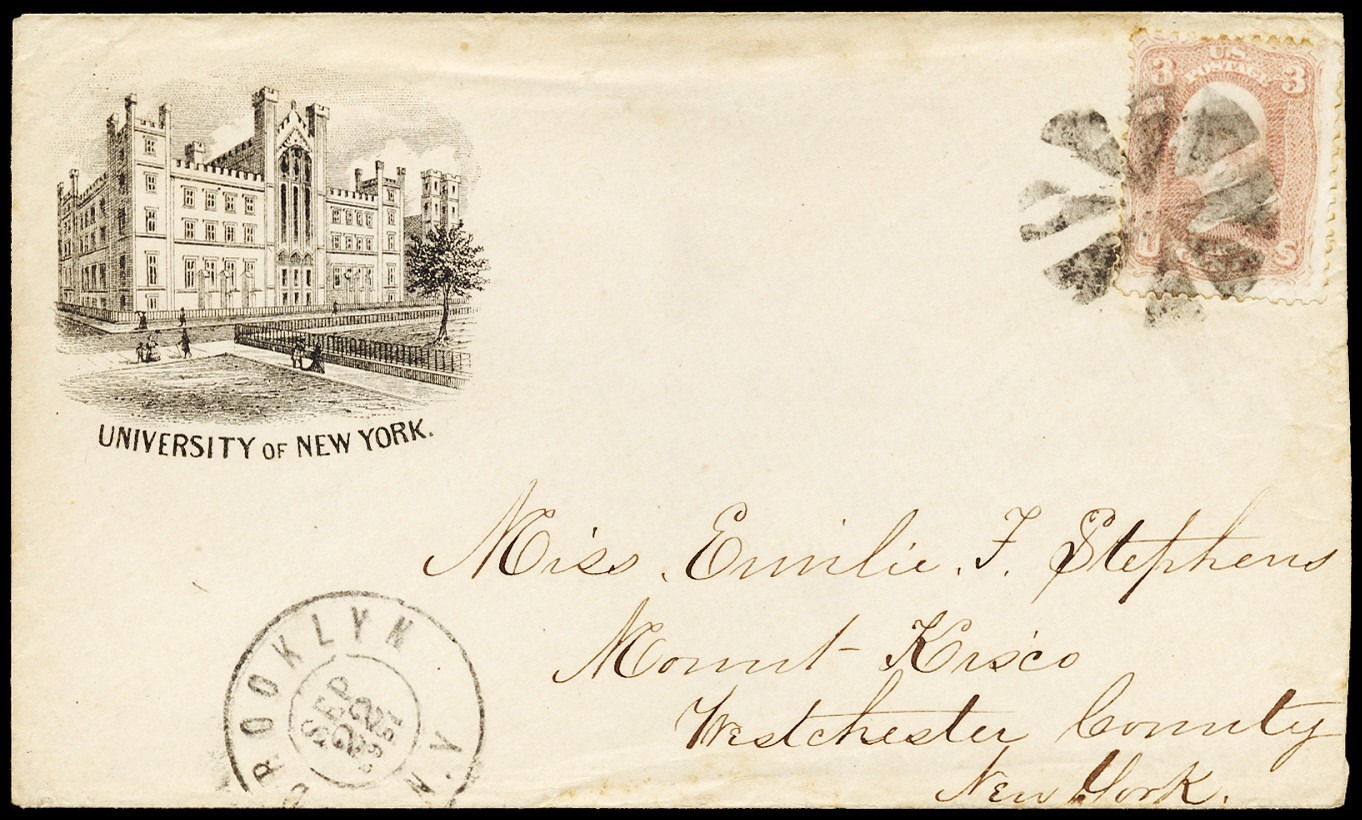 U.S. POSTAGE
3 3
U S
UNIVERSITY OF NEW YORK.
Miss. Emilie. F. Stephens
Mount Kisco
Westchester County
New York.
BROOKLYN N.Y.
SEP
22